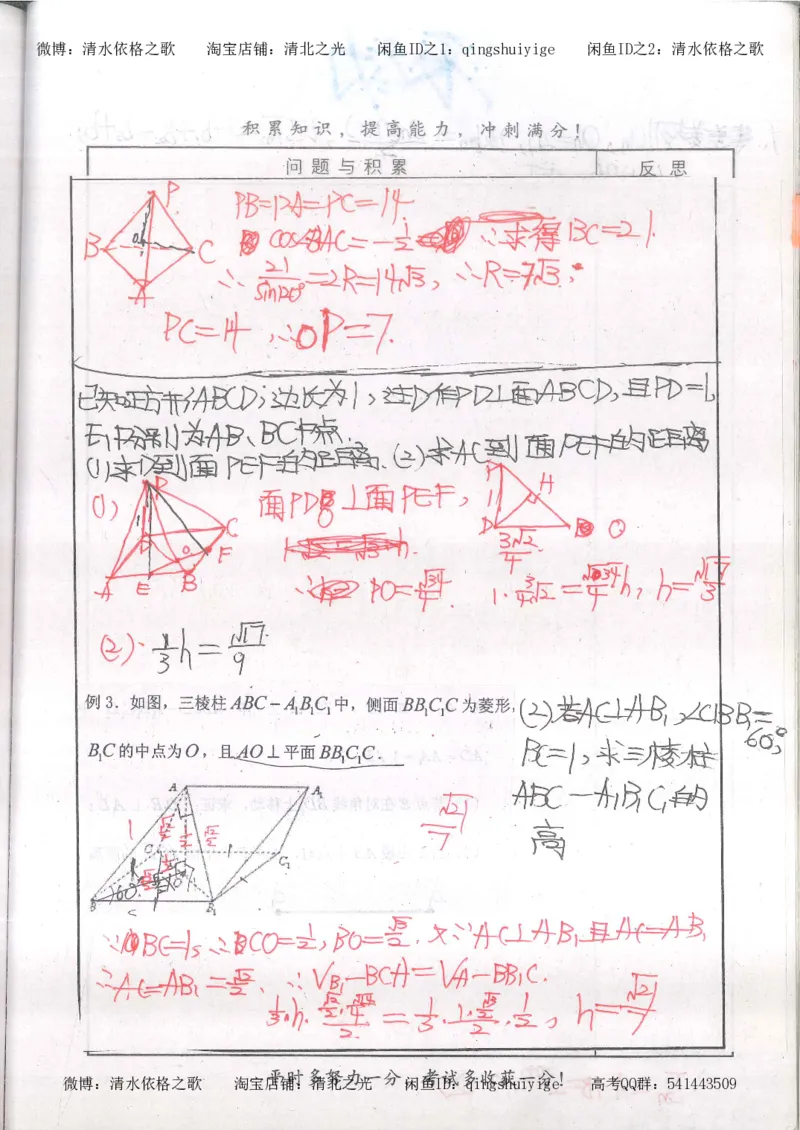 微博：清水依格之歌 淘宝店铺：清北之光 闲鱼ID之1：qingshuiyige 闲鱼ID之2：清水依格之歌
积累知识，提高能力，冲刺满分！
问题与积累 反思
P
B C
A
PB=PA=PC=14
cos∠BAC=-1/2 ∴求得BC=21.
∴21/sin120°=2R=14√3, ∴R=7√3.
PC=14, ∴OP=7.
已知正方形ABCD, 边长为1, 过D作PD⊥面ABCD, 且PD=1,
E,F分别为AB、BC中点.
(1)求D到面PEF的距离. (2)求AC到面PEF的距离
(1) 面PDB⊥面PEF,
P H
D O
3√2/4
A E B F C
∴PO=√34/4 1·3/4√2=√34/4h, h=√17/3
(2). 1/3h=√17/9
例3. 如图，三棱柱ABC-A₁B₁C₁中，侧面BB₁C₁C为菱形，
B₁C的中点为O，且AO⊥平面BB₁C₁C.
(2)若AC⊥AB₁, ∠CBB₁=60°,
BC=1, 求三棱柱
ABC-A₁B₁C₁的
高
√21/7
∵BC=1, ∴CO=1/2, BO=√3/2. 又∵AC⊥AB₁且AC=AB₁
∴AC=AB₁=√2/2. ∴V B₁-BCA=V A-BB₁C.
h=√21/7
平时多努力一分，考试多收获一分！
微博：清水依格之歌 淘宝店铺：清北之光 闲鱼ID：qingshuiyige 高考QQ群：541443509